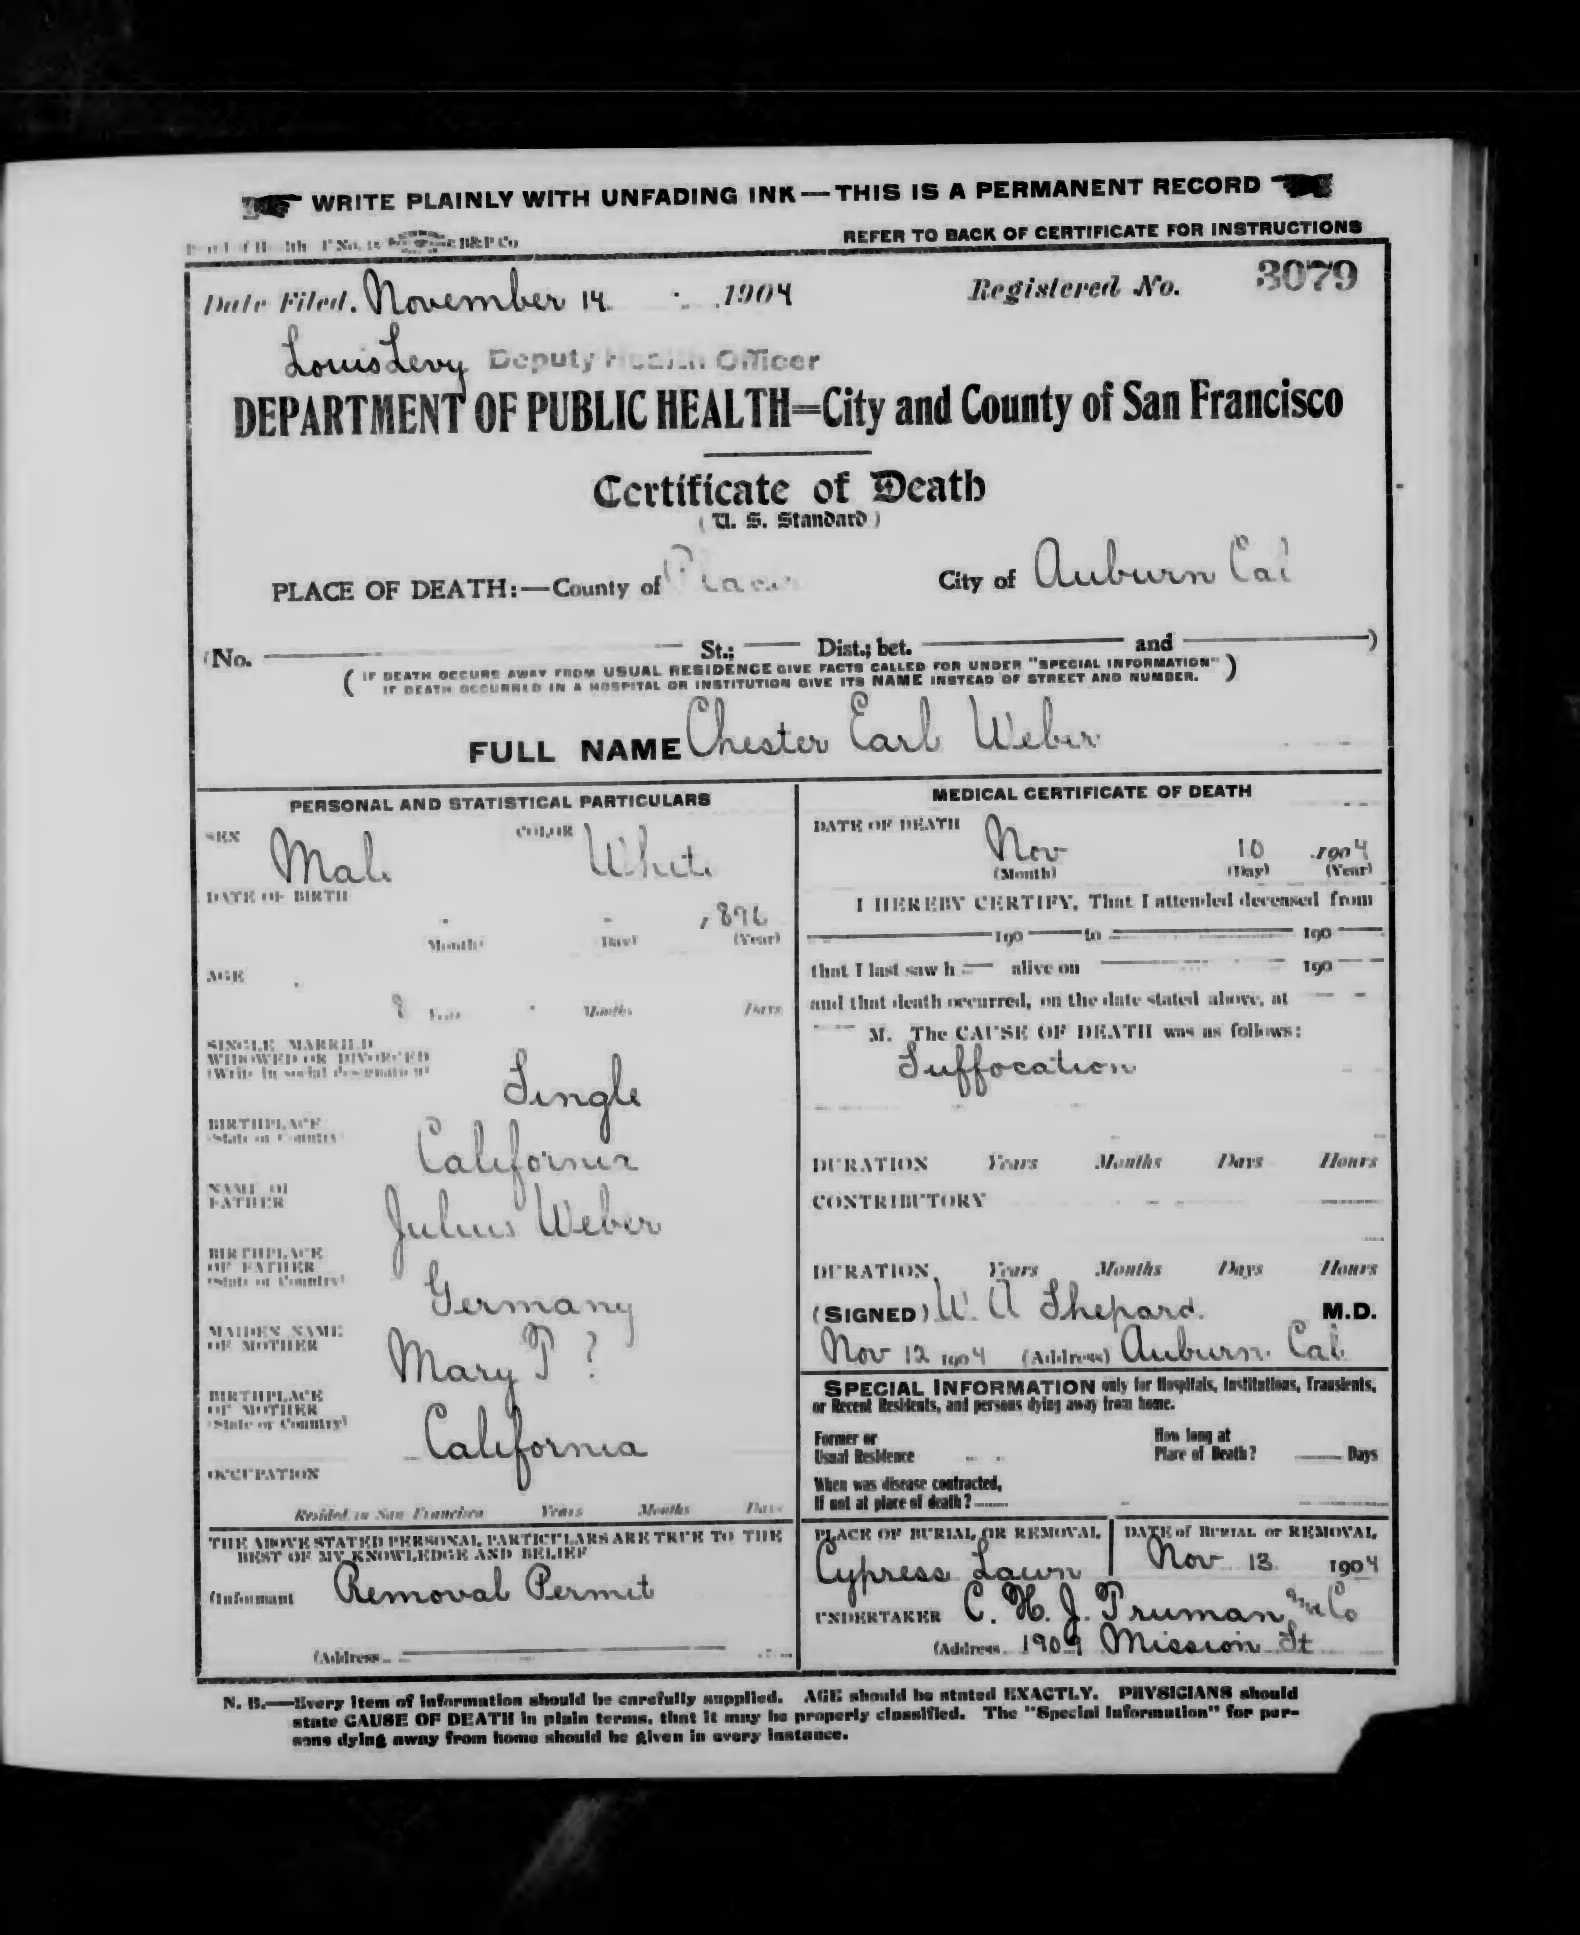 WRITE PLAINLY WITH UNFADING INK—THIS IS A PERMANENT RECORD
B&P Co
REFER TO BACK OF CERTIFICATE FOR INSTRUCTIONS
Date Filed. November 14. 1904 Registered No. 3079
Louis Levy Deputy Health Officer
DEPARTMENT OF PUBLIC HEALTH=City and County of San Francisco
Certificate of Death
(U. S. Standard)
PLACE OF DEATH:—County of Placer City of Auburn Cal
(No. St.; Dist.; bet. and )
(IF DEATH OCCURS AWAY FROM USUAL RESIDENCE GIVE FACTS CALLED FOR UNDER "SPECIAL INFORMATION"
IF DEATH OCCURRED IN A HOSPITAL OR INSTITUTION GIVE ITS NAME INSTEAD OF STREET AND NUMBER.)
FULL NAME Chester Earl Weber
PERSONAL AND STATISTICAL PARTICULARS
SEX Male COLOR White
DATE OF BIRTH
1896
(Month) (Day) (Year)
AGE
8 Years Months Days
SINGLE, MARRIED
WIDOWED OR DIVORCED
(Write in social designation)
Single
BIRTHPLACE
(State or Country)
California
NAME OF
FATHER
Julius Weber
BIRTHPLACE
OF FATHER
(State or Country)
Germany
MAIDEN NAME
OF MOTHER
Mary P ?
BIRTHPLACE
OF MOTHER
(State or Country)
California
OCCUPATION
Resided in San Francisco Years Months Days
THE ABOVE STATED PERSONAL PARTICULARS ARE TRUE TO THE
BEST OF MY KNOWLEDGE AND BELIEF
(Informant Removal Permit
(Address
MEDICAL CERTIFICATE OF DEATH
DATE OF DEATH
Nov 10 1904
(Month) (Day) (Year)
I HEREBY CERTIFY, That I attended deceased from
190 to 190
that I last saw h alive on 190
and that death occurred, on the date stated above, at
M. The CAUSE OF DEATH was as follows:
Suffocation
DURATION Years Months Days Hours
CONTRIBUTORY
DURATION Years Months Days Hours
(SIGNED) W. A Shepard. M.D.
Nov 12 1904 (Address) Auburn. Cal
SPECIAL INFORMATION only for Hospitals, Institutions, Transients,
or Recent Residents, and persons dying away from home.
Former or
Usual Residence
How long at
Place of Death? Days
When was disease contracted,
If not at place of death?
PLACE OF BURIAL OR REMOVAL
Cypress Lawn
DATE of BURIAL or REMOVAL
Nov 13 1904
UNDERTAKER C. H. J. Truman and Co
(Address 1909 Mission St
N. B.—Every item of information should be carefully supplied. AGE should be stated EXACTLY. PHYSICIANS should
state CAUSE OF DEATH in plain terms, that it may be properly classified. The "Special Information" for per-
sons dying away from home should be given in every instance.